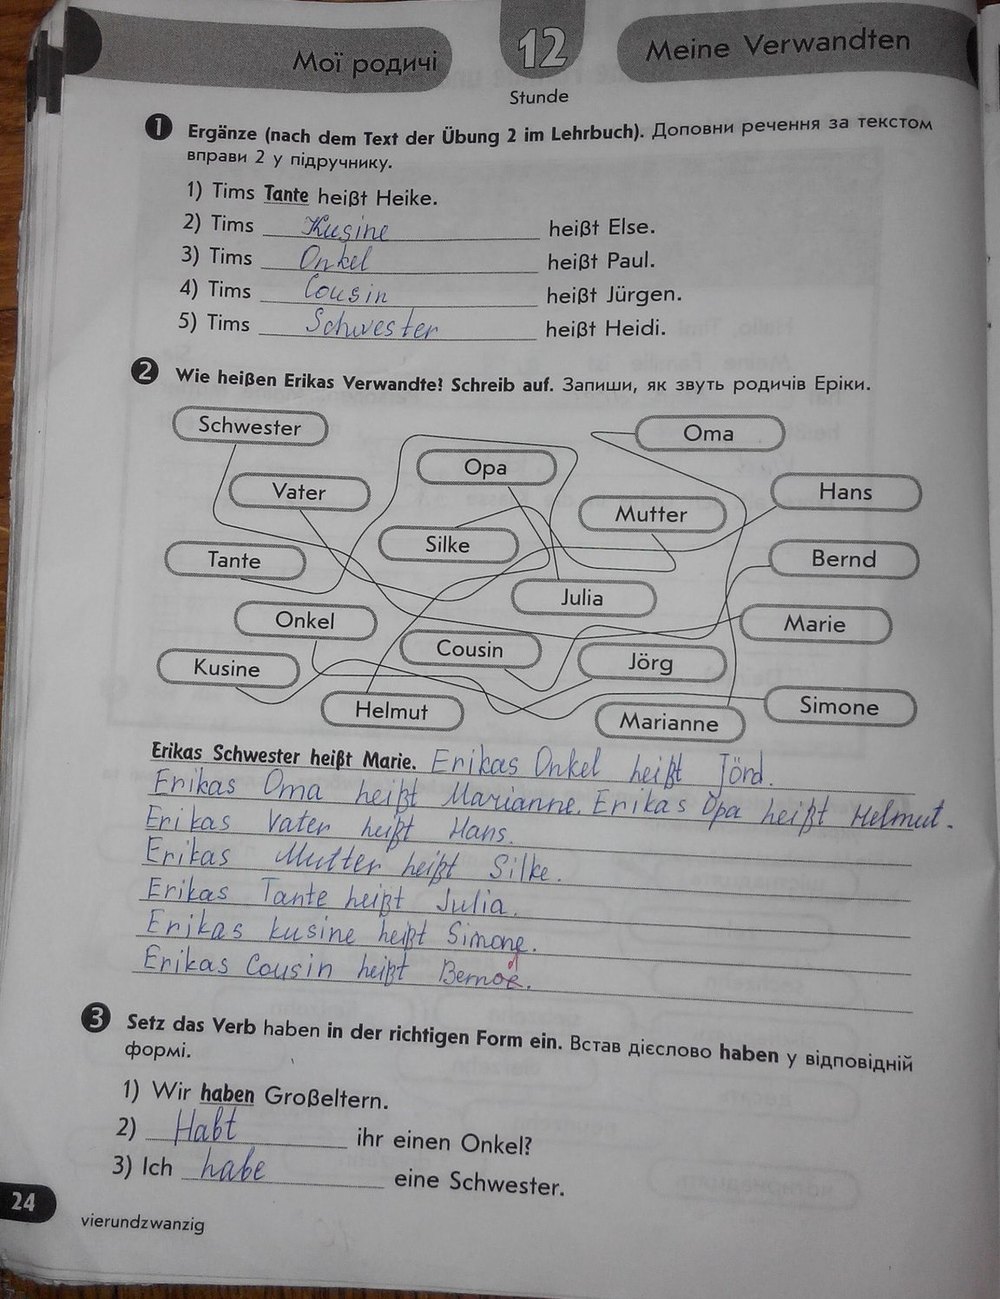 Мої родичі 12 Meine Verwandten
Stunde
1 Ergänze (nach dem Text der Übung 2 im Lehrbuch). Доповни речення за текстом
вправи 2 у підручнику.
1) Tims Tante heißt Heike.
2) Tims Kusine heißt Else.
3) Tims Onkel heißt Paul.
4) Tims Cousin heißt Jürgen.
5) Tims Schwester heißt Heidi.
2 Wie heißen Erikas Verwandte? Schreib auf. Запиши, як звуть родичів Еріки.
Schwester
Oma
Opa
Vater
Hans
Mutter
Silke
Tante
Bernd
Julia
Onkel
Marie
Cousin
Jörg
Kusine
Helmut
Marianne
Simone
Erikas Schwester heißt Marie. Erikas Onkel heißt Jörd.
Erikas Oma heißt Marianne. Erikas Opa heißt Helmut.
Erikas Vater heißt Hans.
Erikas Mutter heißt Silke.
Erikas Tante heißt Julia.
Erikas kusine heißt Simone.
Erikas Cousin heißt
3 Setz das Verb haben in der richtigen Form ein. Встав дієслово haben у відповідній
формі.
1) Wir haben Großeltern.
2) Habt ihr einen Onkel?
3) Ich habe eine Schwester.
24
vierundzwanzig